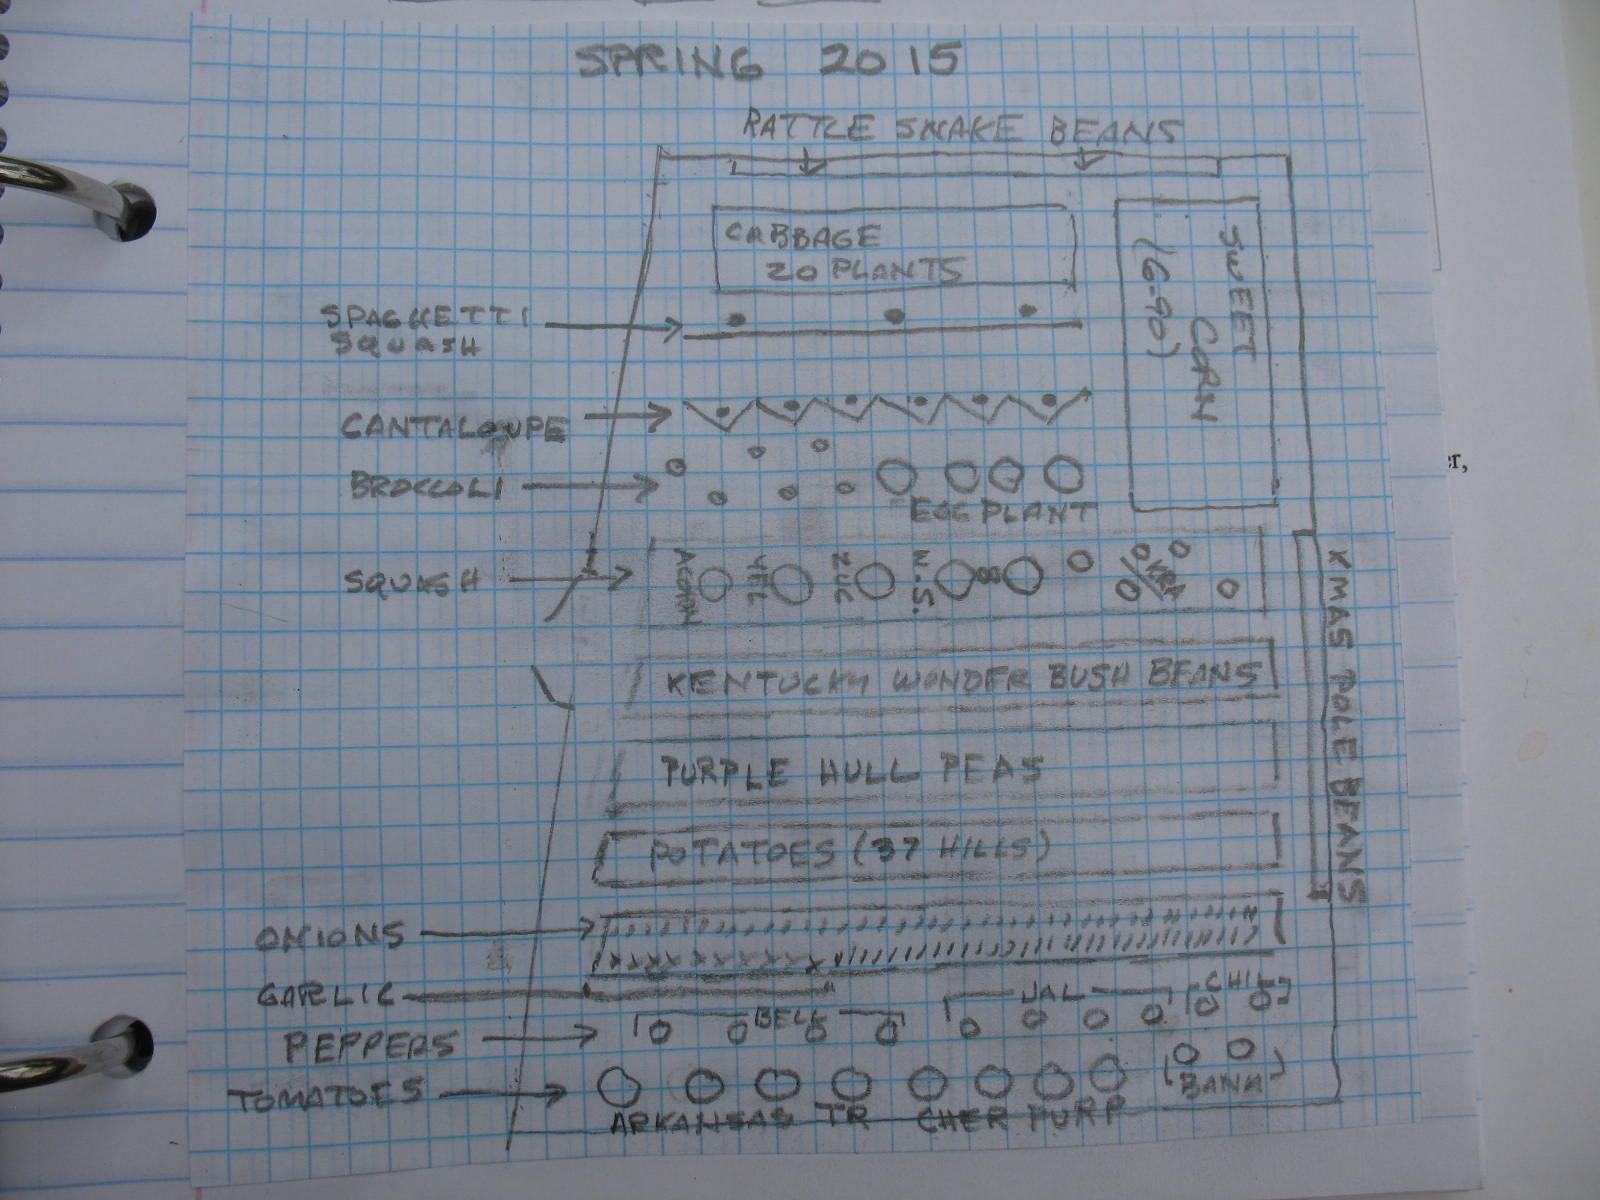 SPRING 2015
RATTLE SNAKE BEANS
CABBAGE
20 PLANTS
SWEET
CORN
(6-90)
SPAGHETTI
SQUASH
CANTALOUPE
BROCCOLI
EGG PLANT
SQUASH
ACORN
YEL
ZUC
W.S.
OKRA
XMAS POLE BEANS
KENTUCKY WONDER BUSH BEANS
PURPLE HULL PEAS
POTATOES (37 HILLS)
ONIONS
GARLIC
JAL
CHIL
PEPPERS
BELL
TOMATOES
BANA
ARKANSAS TR CHER PURP
er,